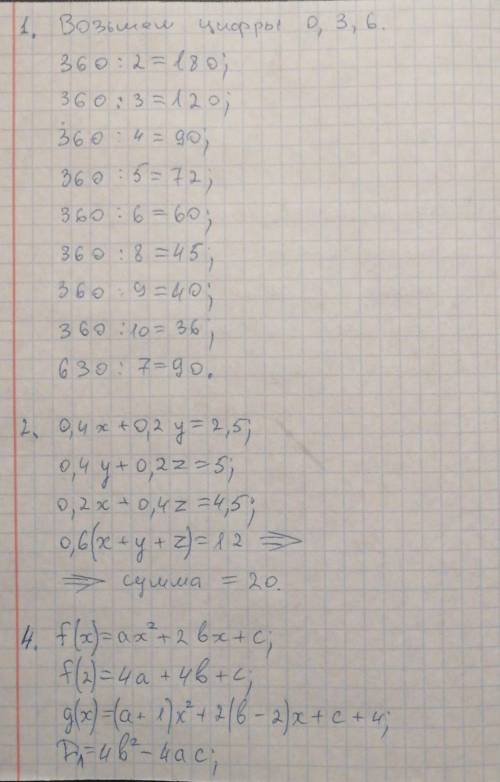 1. Возьмем цифры 0, 3, 6.
360 : 2 = 180;
360 : 3 = 120;
360 : 4 = 90;
360 : 5 = 72;
360 : 6 = 60;
360 : 8 = 45;
360 : 9 = 40;
360 : 10 = 36;
630 : 7 = 90.
2. 0,4x + 0,2y = 2,5;
0,4y + 0,2z = 5;
0,2x + 0,4z = 4,5;
0,6(x + y + z) = 12 ⇒
⇒ сумма = 20.
4. f(x) = ax² + 2bx + c;
f(2) = 4a + 4b + c;
g(x) = (a + 1)x² + 2(b - 2)x + c + 4;
D₁ = 4b² - 4ac;